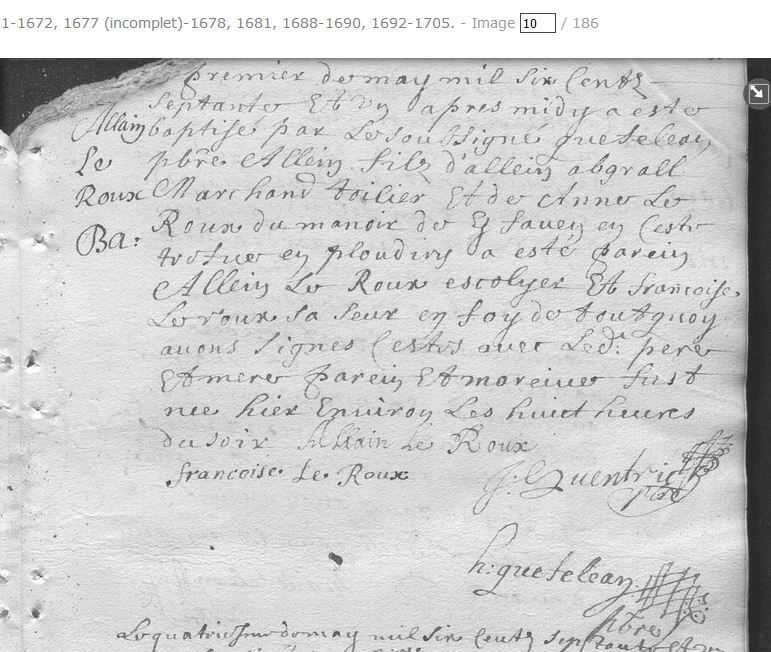 1-1672, 1677 (incomplet)-1678, 1681, 1688-1690, 1692-1705. - Image 10 / 186
premier de may mil six Centz
Septante Et un apres midy a este
Allain baptisé par Le soussigné quefelean
Le pbre Allein filz d'allein abgrall
Roux Marchand toilier Et de Anne Le
Ba: Roux du manoir de en Ceste
trefve en ploudiry a esté parein
Allein Le Roux escolyer Et francoise
Le roux sa seur en foy de tout quoy
avons signes Cestes avec Led: pere
Et mere parein Et mareine fust
nee hier Environ Les huict heures
du soir Allain Le Roux
francoise Le Roux
J: Quentric
pbre
h: quefelean
pbre
Le quatriesme de may mil six Centz septante et un